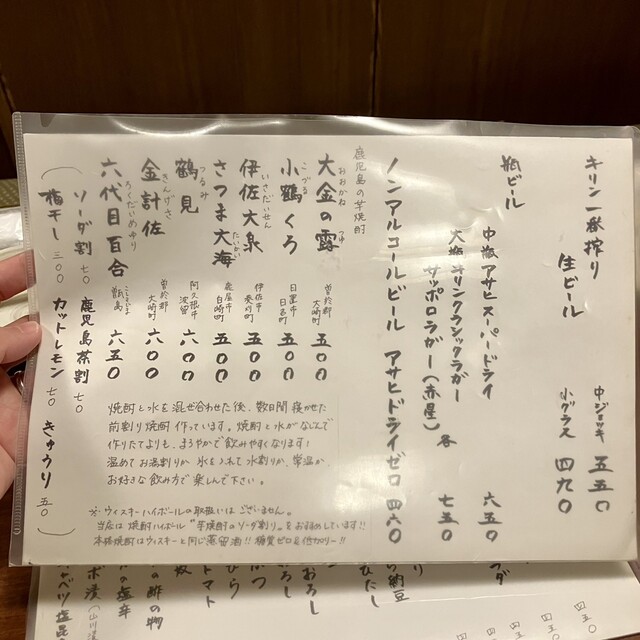 キリン一番搾り
生ビール
中ジョッキ 五五〇
小グラス 四九〇
瓶ビール
中瓶アサヒスーパードライ 六五〇
大瓶キリンクラシックラガー
サッポロラガー(赤星) 各 七五〇
ノンアルコールビール アサヒドライゼロ 四六〇
鹿児島の芋焼酎
大金の露 おおがねつゆ 曽於郡大崎町 五〇〇
小鶴くろ こづる 日置市日吉町 五〇〇
伊佐大泉 いさだいせん 伊佐市菱刈町 五〇〇
さつま大海 たいかい 鹿屋市白崎町 五〇〇
鶴見 つるみ 阿久根市波留 六〇〇
金計佐 きんげさ 曽於郡大崎町 六〇〇
六代目百合 ろくだいめゆり 甑島 こしきじま 六五〇
ソーダ割 七〇 鹿児島茶割 七〇
梅干し 三〇〇 カットレモン 七〇 きゅうり 五〇
焼酎と水を混ぜ合わせた後、数日間寝かせた
前割り焼酎作っています。焼酎と水がなじんで
作りたてよりも、まろやかで飲みやすくなります!
温めてお湯割りか 氷を入れて水割りか、常温か、
お好きな飲み方で楽しんで下さい。
※ウィスキーハイボールの取扱いはございません。
当店は焼酎ハイボール"芋焼酎のソーダ割り"をおすすめしています!!
本格焼酎はウィスキーと同じ蒸留酒!! 糖質ゼロ&低カロリー!!
四五〇
四五〇
四五〇
ら納豆
ひたし
おろし
トマト
の酢の物
の塩辛
(山川漬